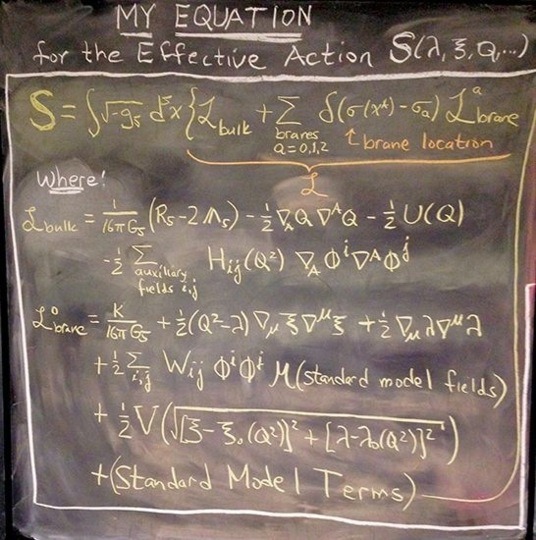 MY EQUATION
for the Effective Action S(λ, ξ, Q,...)
S = ∫√-g₅ d⁵x {ℒbulk + ∑ δ(σ(xᴬ) - σₐ) ℒᵃbrane
branes a=0,1,2 ↑ brane location
ℒ
Where:
ℒbulk = 1/16πG₅ (R₅ - 2Λ₅) - ½ ∇ₐQ ∇ᴬQ - ½ U(Q)
- ½ ∑ Hᵢⱼ(Q²) ∇ₐ Φⁱ ∇ᴬ Φʲ
auxiliary fields i,j
ℒ⁰brane = K/16πG₅ + ½(Q²-λ) ∇μ ξ ∇ᵘ ξ + ½ ∇μ λ ∇ᵘ λ
+ ½ ∑i,j Wᵢⱼ Φⁱ Φⁱ M(standard model fields)
+ ½ V(√[ξ - ξ₀(Q²)]² + [λ - λ₀(Q²)]²)
+ (Standard Model Terms)